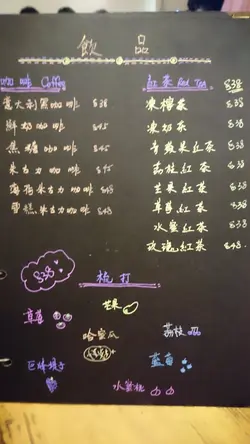 飲 品
咖啡 Coffee
意大利黑咖啡 $38
鮮奶咖啡 $45
焦糖咖啡 $45
朱古力咖啡 $45
薄荷朱古力咖啡 $48
雪糕朱古力咖啡 $48
紅茶 Red Tea $38
凍檸茶 $38
凍奶茶 $38
青蘋果紅茶 $38
荔枝紅茶 $38
芒果紅茶 $38
草莓紅茶 $38
水蜜紅茶 $38
玫瑰紅茶 $48
$38
梳打
芒果
草莓
哈蜜瓜
荔枝
藍莓
巨峰提子
水蜜桃